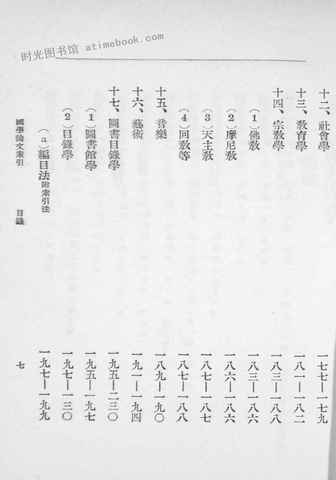 时光图书馆 atimebook.com
十二、社會學 一七七—一七九
十三、教育學 一八一—一八二
十四、宗教學 一八三—一八八
(1)佛教 一八三—一八六
(2)摩尼教 一八六—一八六
(3)天主教 一八七—一八七
(4)回教等 一八七—一八八
十五、音樂 一八九—一九〇
十六、藝術 一九一—一九四
十七、圖書目錄學 一九五—二三〇
(1)圖書館學 一九五—一九七
(2)目錄學 一九七—二三〇
(a)編目法附索引法 一九七—一九九
國學論文索引 目錄 七